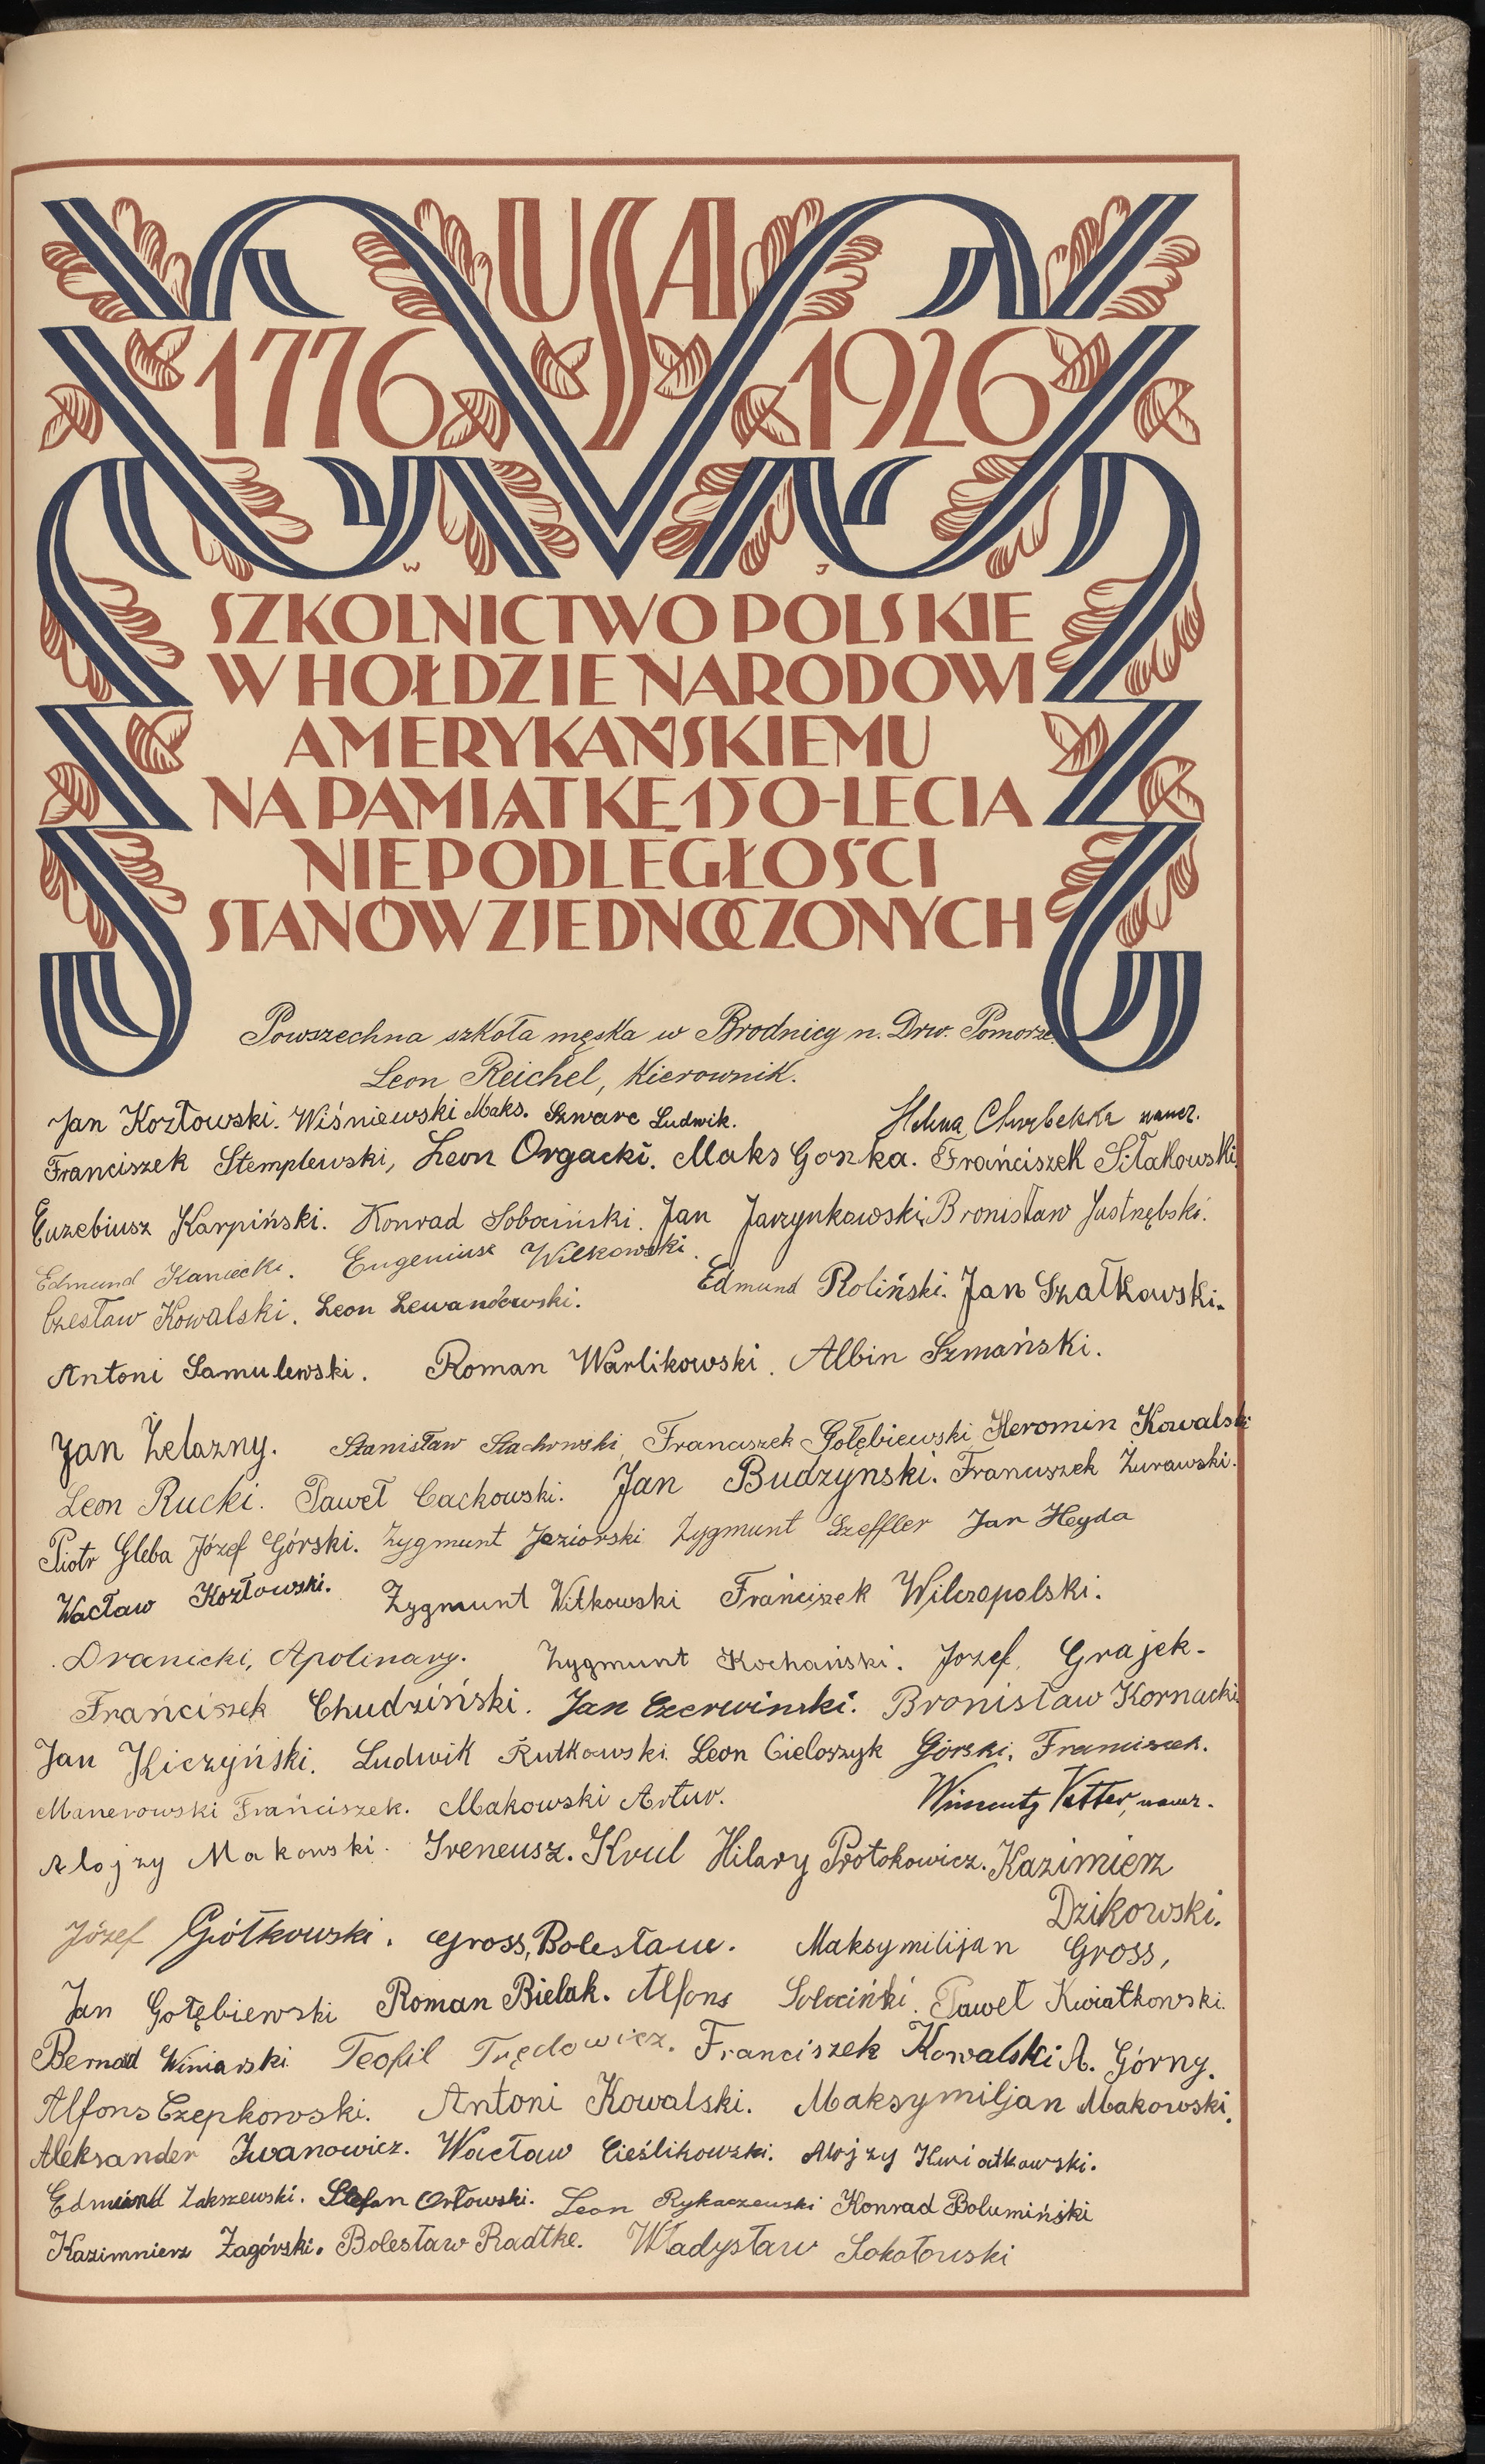 USA
1776 1926
W J
SZKOLNICTWO POLSKIE
W HOŁDZIE NARODOWI
AMERYKAŃSKIEMU
NA PAMIĄTKĘ 150-LECIA
NIEPODLEGŁOŚCI
STANÓW ZJEDNOCZONYCH
Powszechna szkoła męska w Brodnicy n. Drw. Pomorze.
Leon Reichel, Kierownik.
Jan Kozłowski. Wiśniewski Maks. Szwarc Ludwik. Helena naucz.
Franciszek Stemplewski, Leon Orgacki. Maks Gonka. Frańciszek Siłakowski.
Euzebiusz Karpiński. Konrad Sobociński. Jan Jarzynkowski. Bronisław Jastrzębski.
Edmund Kaniecki. Eugeniusz Wilkowski.
Edmund Roliński. Jan Szałkowski.
Czesław Kowalski. Leon Lewandowski.
Antoni Samulewski. Roman Warlikowski. Albin Szmański.
Jan Żelazny. Stanisław Stachowski, Franciszek Gołębiewski Heromin Kowalski
Leon Rucki. Paweł Cackowski. Jan Budzynski. Franciszek Żurawski.
Piotr Gleba Józef Górski. Zygmunt Jeziorski Zygmunt Szeffler Jan Heyda
Wacław Kozłowski. Zygmunt Witkowski Frańciszek Wilczopolski.
Dranicki, Apolinary. Zygmunt Kochański. Józef Grajek.
Frańciszek Chudziński. Jan Czerwiński. Bronisław Kornacki
Jan Kiczyński. Ludwik Rutkowski. Leon Cieloszyk Górski, Franciszek.
Manerowski Frańciszek. Makowski Artur. Wincenty Vetter, naucz.
Alojzy Makowski. Ireneusz. Krul Hilary Protokowicz. Kazimierz
Dzikowski.
Józef Giółkowski. Gross, Bolesław. Maksymilijan Gross,
Jan Gołębiewski Roman Bielak. Alfons Soleciński. Paweł Kwiatkowski.
Bernad Winiarski Teofil Trędowicz. Franciszek Kowalski A. Górny.
Alfons Czepkowski. Antoni Kowalski. Maksymiljan Makowski.
Aleksander Iwanowicz. Wacław Cieślikowski. Alojzy Kwiatkowski.
Edmund Zakszewski. Stefan Orłowski. Leon Rykaczewski Konrad Bolumiński
Kazimnierz Zagórski. Bolesław Radtke. Władysław Sokołowski